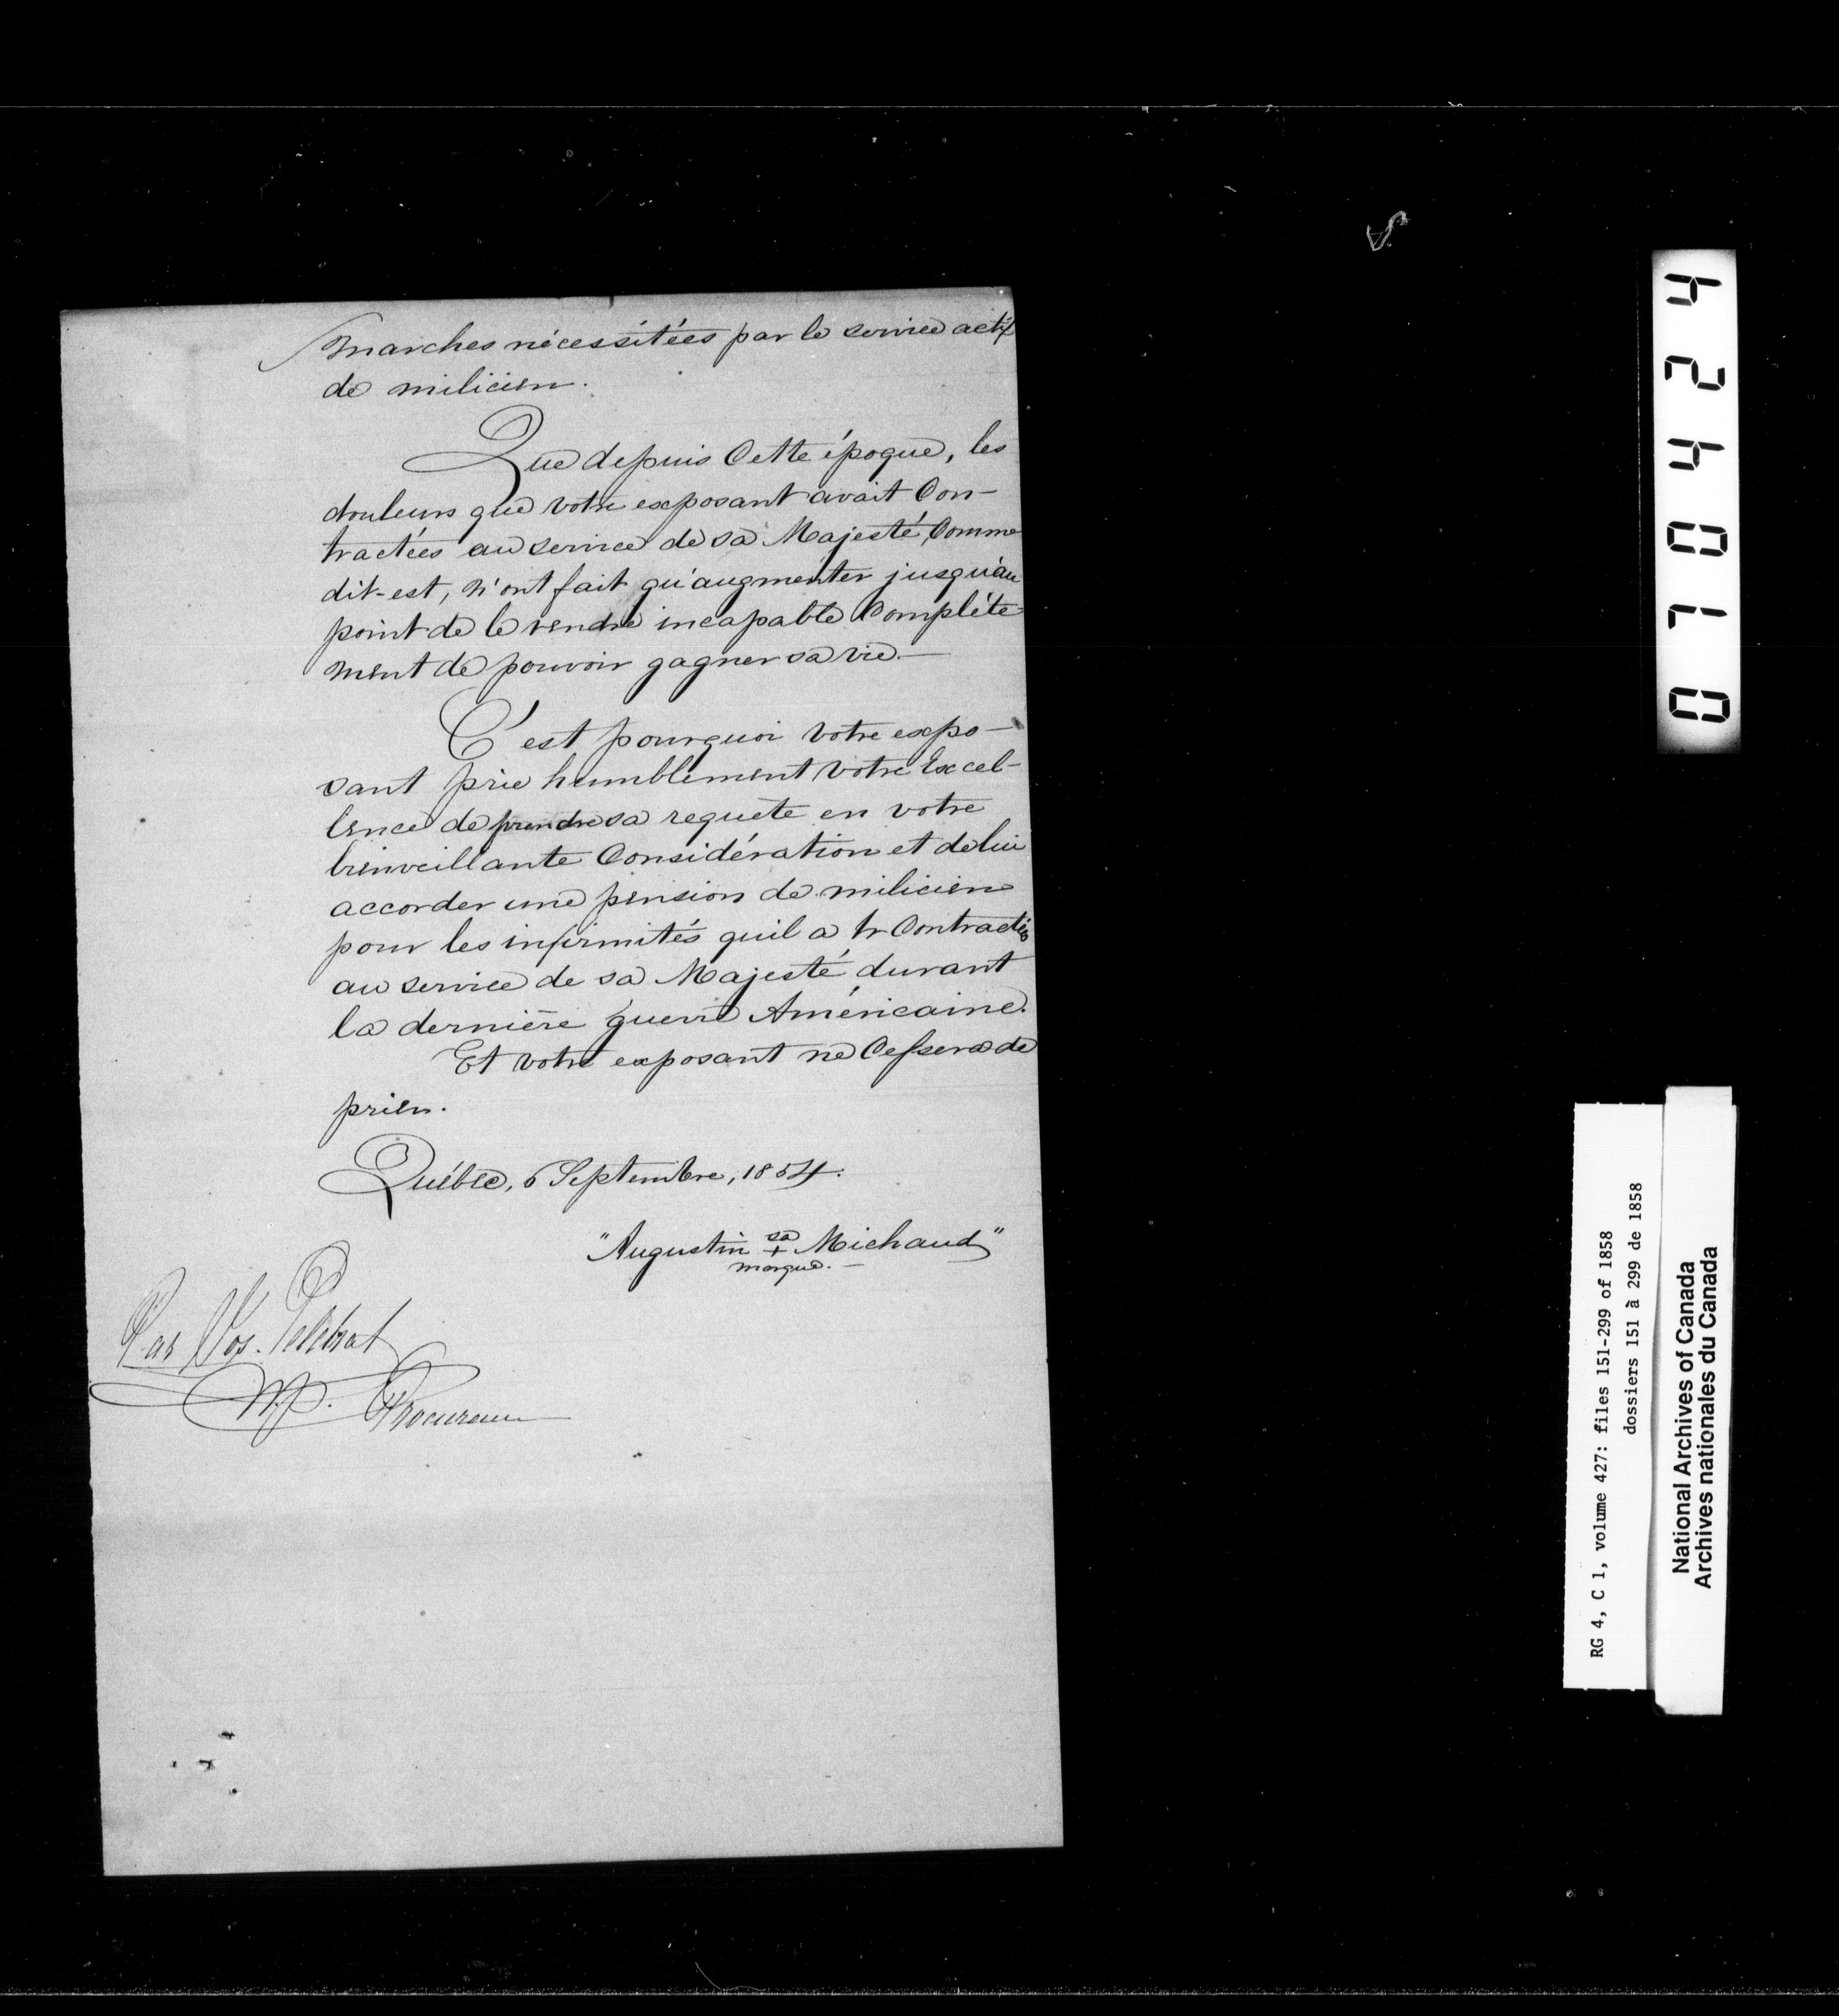 marches nécessitées par le service actif
de milicien.
Que depuis Cette époque, les
douleurs que votre exposant avait Con-
tractées au service de sa Majesté, Comme
dit-est, n'ont fait qu'augmenter jusqu'au
point de le rendre incapable Complète
ment de pouvoir gagner sa vie.—
C'est pourquoi votre expo-
sant prie humblement votre Excel-
lence de prendre sa requête en votre
bienveillante Considération et de lui
accorder une pension de milicien
pour les infirmités qu'il a Contractées
au service de sa Majesté durant
la dernière guerre Américaine.
Et votre exposant ne Cessera de
prier.
Québec, 6 Septembre, 1854.
"Augustin sa + Michaud"
marque.—
Par
M.P. Procureur
04240174
RG 4, C 1, volume 427: files 151-299 of 1858
dossiers 151 à 299 de 1858
National Archives of Canada
Archives nationales du Canada